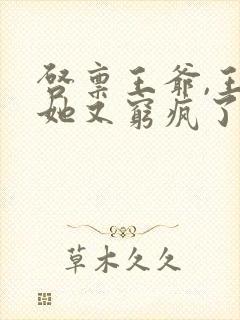 启禀王爷,王
她又穷疯了
草木久久